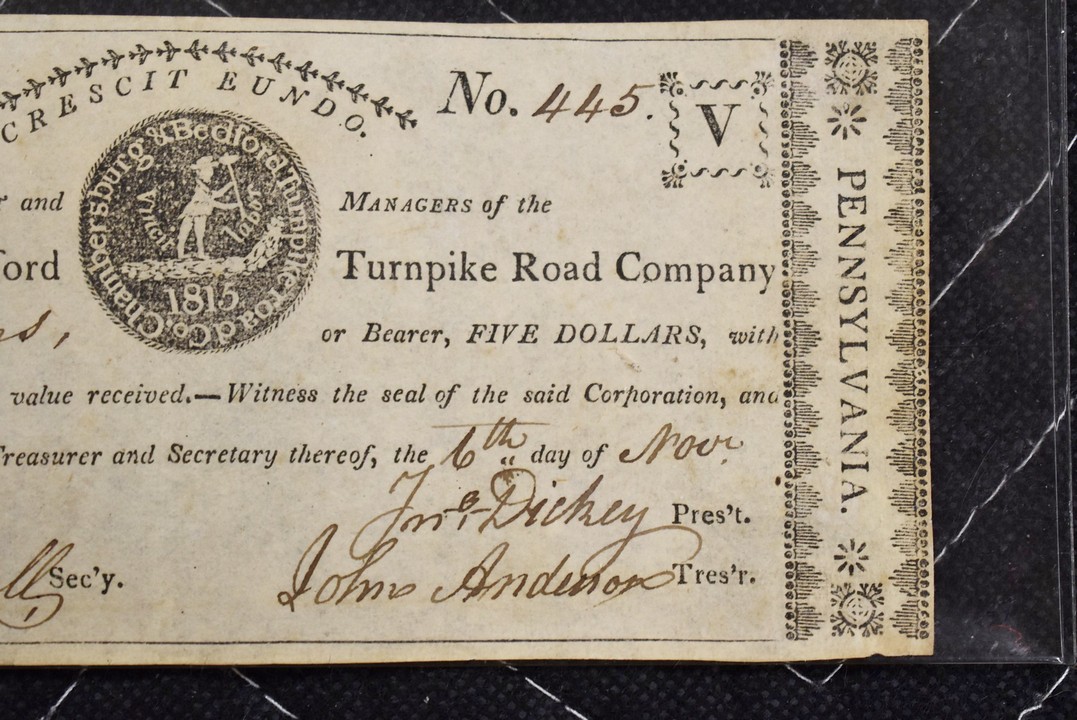 CRESCIT EUNDO.
No. 445.
V
Chambersburg & Bedford turnpike road Co.
1815
and
MANAGERS of the
ford
Turnpike Road Company
or Bearer, FIVE DOLLARS, with
value received.—Witness the seal of the said Corporation, and
Treasurer and Secretary thereof, the 6th day of Novr.
Jno. Dickey Pres't.
Sec'y.
John Anderson Tres'r.
PENNSYLVANIA.